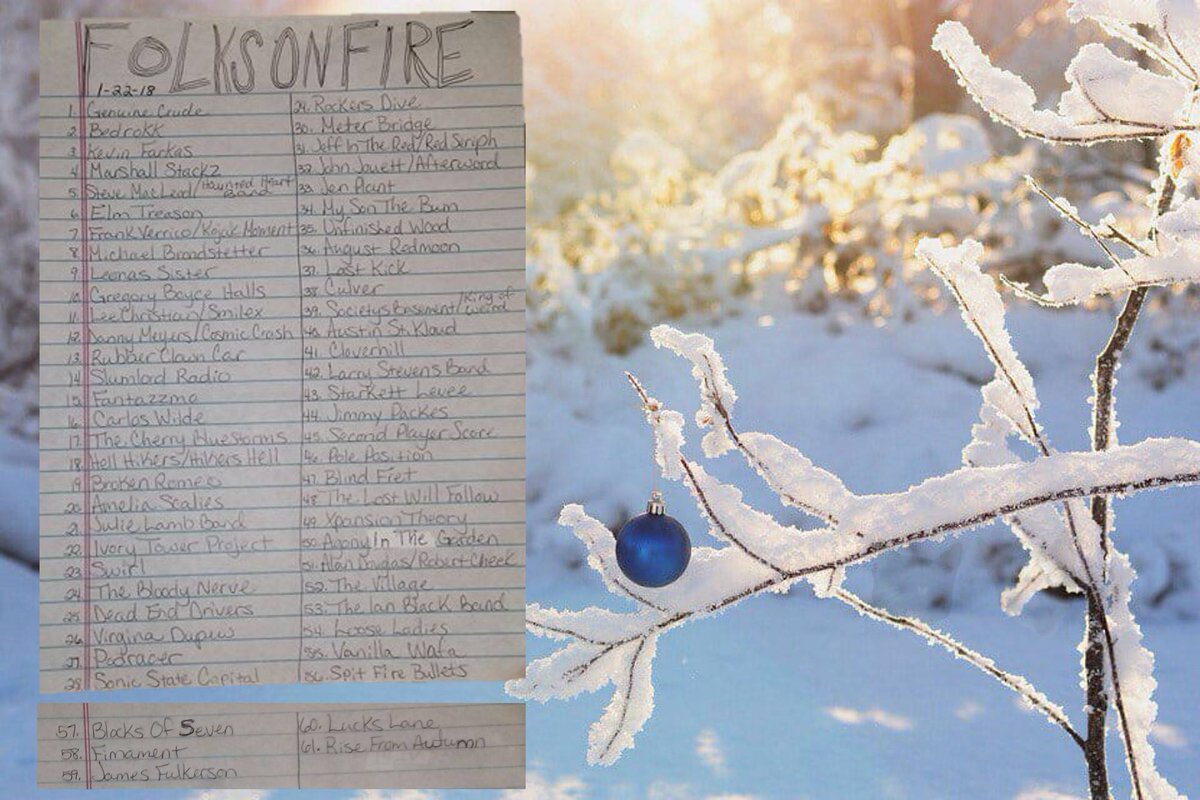 FOLKSONFIRE
1-22-18
1. Genuine Crude
2. Bedrokk
3. Kevin Farkas
4. Marshall Stackz
5. Steve MacLeod/Haunted Heart
6. Elm Treason
7. Frank Verrico/Kojak Moment
8. Michael Brandstetter
9. Leonas Sister
10. Gregory Boyce Halls
11. Lee Christian/Smilex
12. Danny Meyers/Cosmic Crash
13. Rubber Clown Car
14. Slumlord Radio
15. Fantazzma
16. Carlos Wilde
17. The Cherry Bluestorms
18. Hell Hikers/Hikers Hell
19. Broken Romeo
20. Amelia Scalies
21. Julie Lamb Band
22. Ivory Tower Project
23. Swirl
24. The Bloody Nerve
25. Dead End Drivers
26. Virgina Dupuw
27. Podracer
28. Sonic State Capital
29. Rockers Dive
30. Meter Bridge
31. Jeff In The Red/Red Seriph
32. John Jouett/Afterword
33. Jen Plant
34. My Son The Bum
35. Unfinished Wood
36. August Redmoon
37. Last Kick
38. Culver
39. Societys Basement/King of
40. Austin St. Kloud
41. Cloverhill
42. Larry Stevens Band
43. Starkett Levee
44. Jimmy Packes
45. Second Player Score
46. Pole Position
47. Blind Fret
48. The Lost Will Follow
49. Xpansion Theory
50. Agony In The Garden
51. Alan Douglas/Robert Cheek
52. The Village
53. The Ian Black Band
54. Loose Ladies
55. Vanilla Wafa
56. Spit Fire Bullets
57. Blocks Of Seven
58. Fimament
59. James Fulkerson
60. Lucks Lane
61. Rise From Autumn